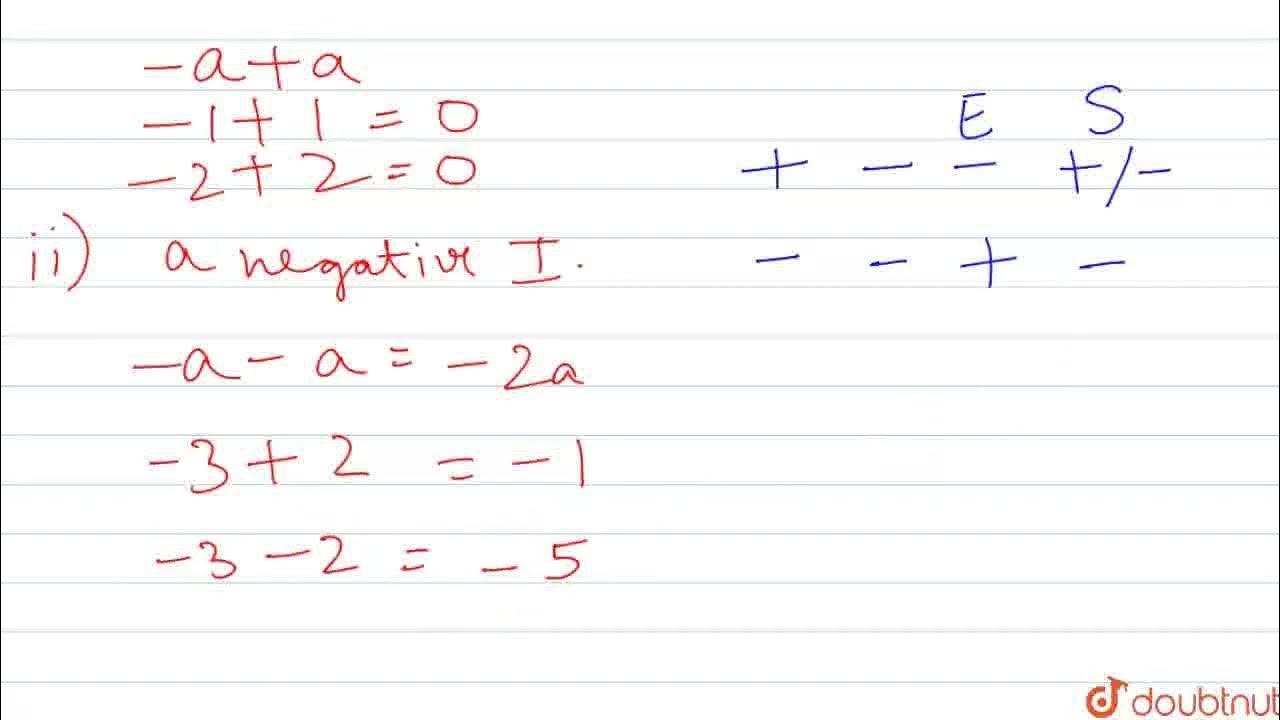 -a+a
-1+1=0
-2+2=0
ii) a negative I.
-a-a=-2a
-3+2 = -1
-3-2 = -5
E S
+ - - +/-
- - + -
doubtnut